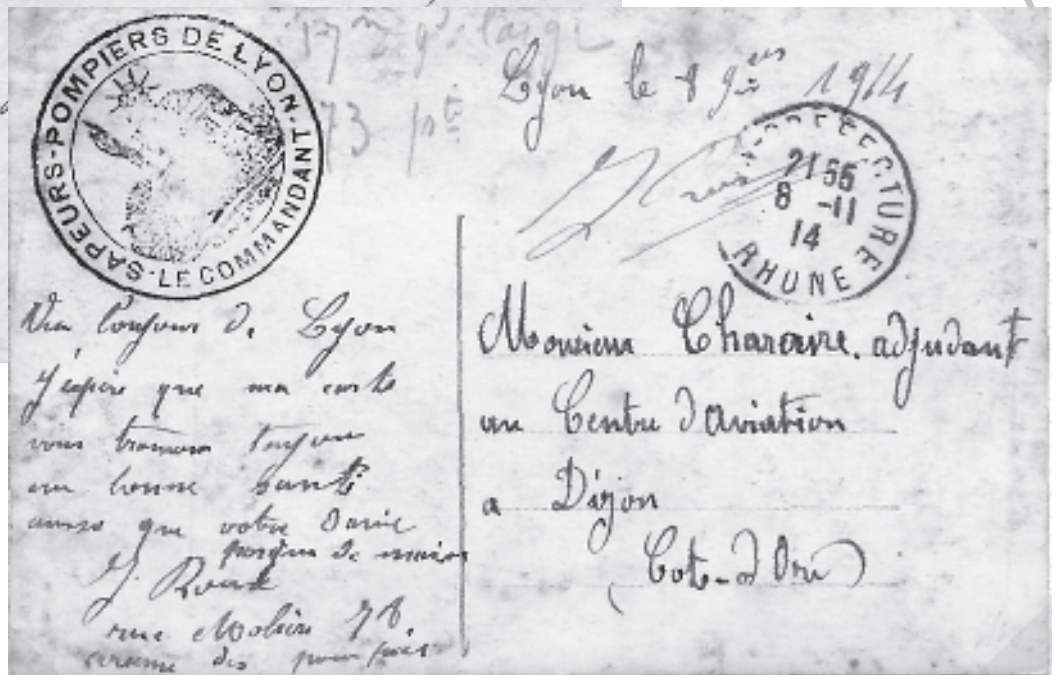 SAPEURS-POMPIERS DE LYON · LE COMMANDANT
17 m large
73
Lyon le 8 9bre 1914
PREFECTURE
21 55
8 -11
14
RHONE
Bonjour de Lyon
J'espère que ma carte
vous trouvera toujours
en bonne santé
ainsi que votre Dame
J. Roux
rue Molière 78
caserne des pompiers
Monsieur Charaire. adjudant
au Centre d'Aviation
a Dijon
(Cote-d'Or)